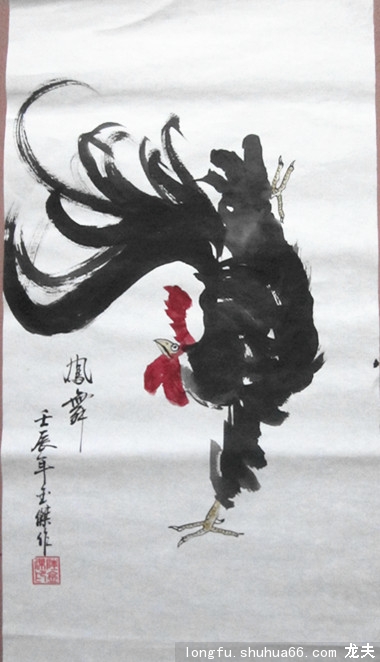 鳳舞
壬辰年玉傑作
longfu.shuhua66.com 龙夫